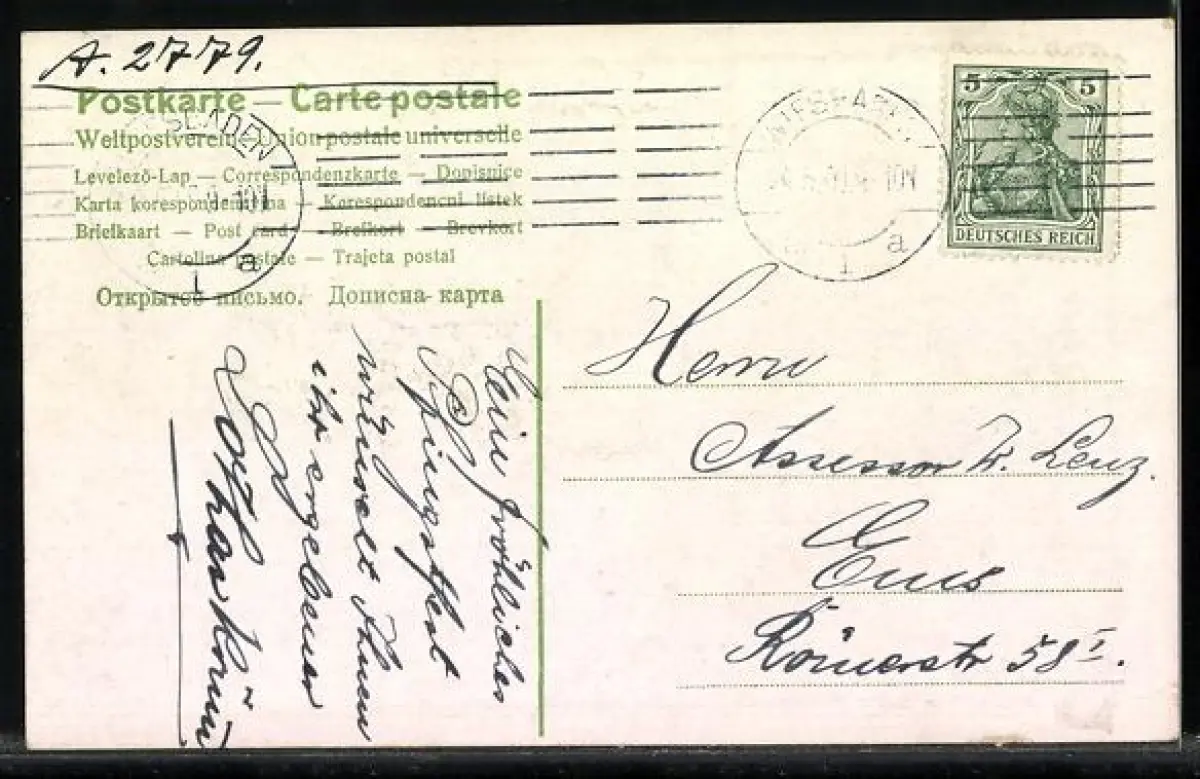 A. 2779.
Postkarte — Carte postale
Weltpostverein — Union postale universelle
Levelező-Lap — Correspondenzkarte — Dopisnice
Karta korespondencyjna — Korespondencni listek
Briefkaart — Post card — Brefkort — Brevkort
Cartolina postale — Trajeta postal
Открытое письмо. Дописна карта
5 5
DEUTSCHES REICH
WIESBADEN
1 a
Herrn
Assessor Dr. Lenz.
Ems
Römerstr 58 I.
Ein fröhliches
Pfingstfest
wünscht Ihnen
ihr ergebener